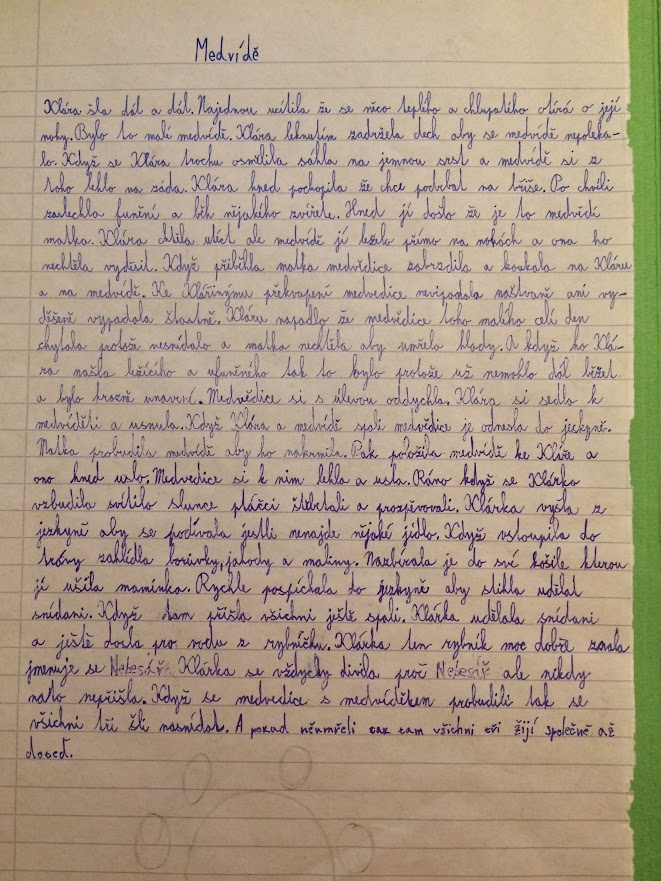 Medvídě
Klára šla dál a dál. Najednou ucítila že se něco teplého a chlupatího otírá o její
nohy. Bylo to malí medvídě. Klára leknutím zadržela dech aby se medvídě nepoleka-
lo. Když se Klára trochu osmělila sáhla na jemnou srst a medvídě si z
toho lehlo na záda. Klára hned pochopila že chce podrbat na bříše. Po chvíli
zaslechla funění a běh nějakého zvířete. Hned jí došlo že je to medvědí
matka. Klára chtěla utíct ale medvídě jí leželo přímo na nohách a ona ho
nechtěla vyděsit. Když přiběhla matka medvědice zabrzdila a koukala na Kláru
a na medvídě. Ke Klářinýmu překvapení medvedice nevipadala naštvaně ani vy-
děšeně vypadala štastně. Kláru napadlo že medvědice toho malého celí den
chytala protože nesnídalo a matka nechtěla aby umřelo hlady. A když ho Klá-
ra našla ležícího a ufuněného tak to bylo protože už nemohlo dál běžet
a bylo hrozně unavní. Medvědice si s úlevou oddychla. Klára si sedla k
medvíděti a usnula. Když Klára a medvídě spali medvědice je odnesla do jezkyně.
Matka probudila medvídě aby ho nakrmila. Pak položila medvídě ke Kláře a
ono hned uslo. Medvedice si k nim lehla a usla. Ráno když se Klárka
vzbudila svítilo slunce ptáčci štěbtali a prozpěvovali. Klárka vyšla z
jezkyně aby se podívala jestli nenajde nějaké jídlo. Když vstoupila do
trávy zahlídla borůvky, jahody a maliny. Nazbírala je do své košile kterou
jí ušila maminka. Rychle pospíchala do jezkyně aby stihla udělat
snídani. Když tam přišla všichni ještě spali. Klárka udělala snídani
a ještě došla pro vodu z rybníčku. Klárka ten rybník moc dobře znala
jmenuje se Nebesář. Klárka se vždycky divila proč Nebesář ale nikdy
nato nepřišla. Když se medvedice s medvídětem probudili tak se
všichni tři šli nasnídat. A pokud neumřeli tak tam všichni tři žijí společně až
doseď.